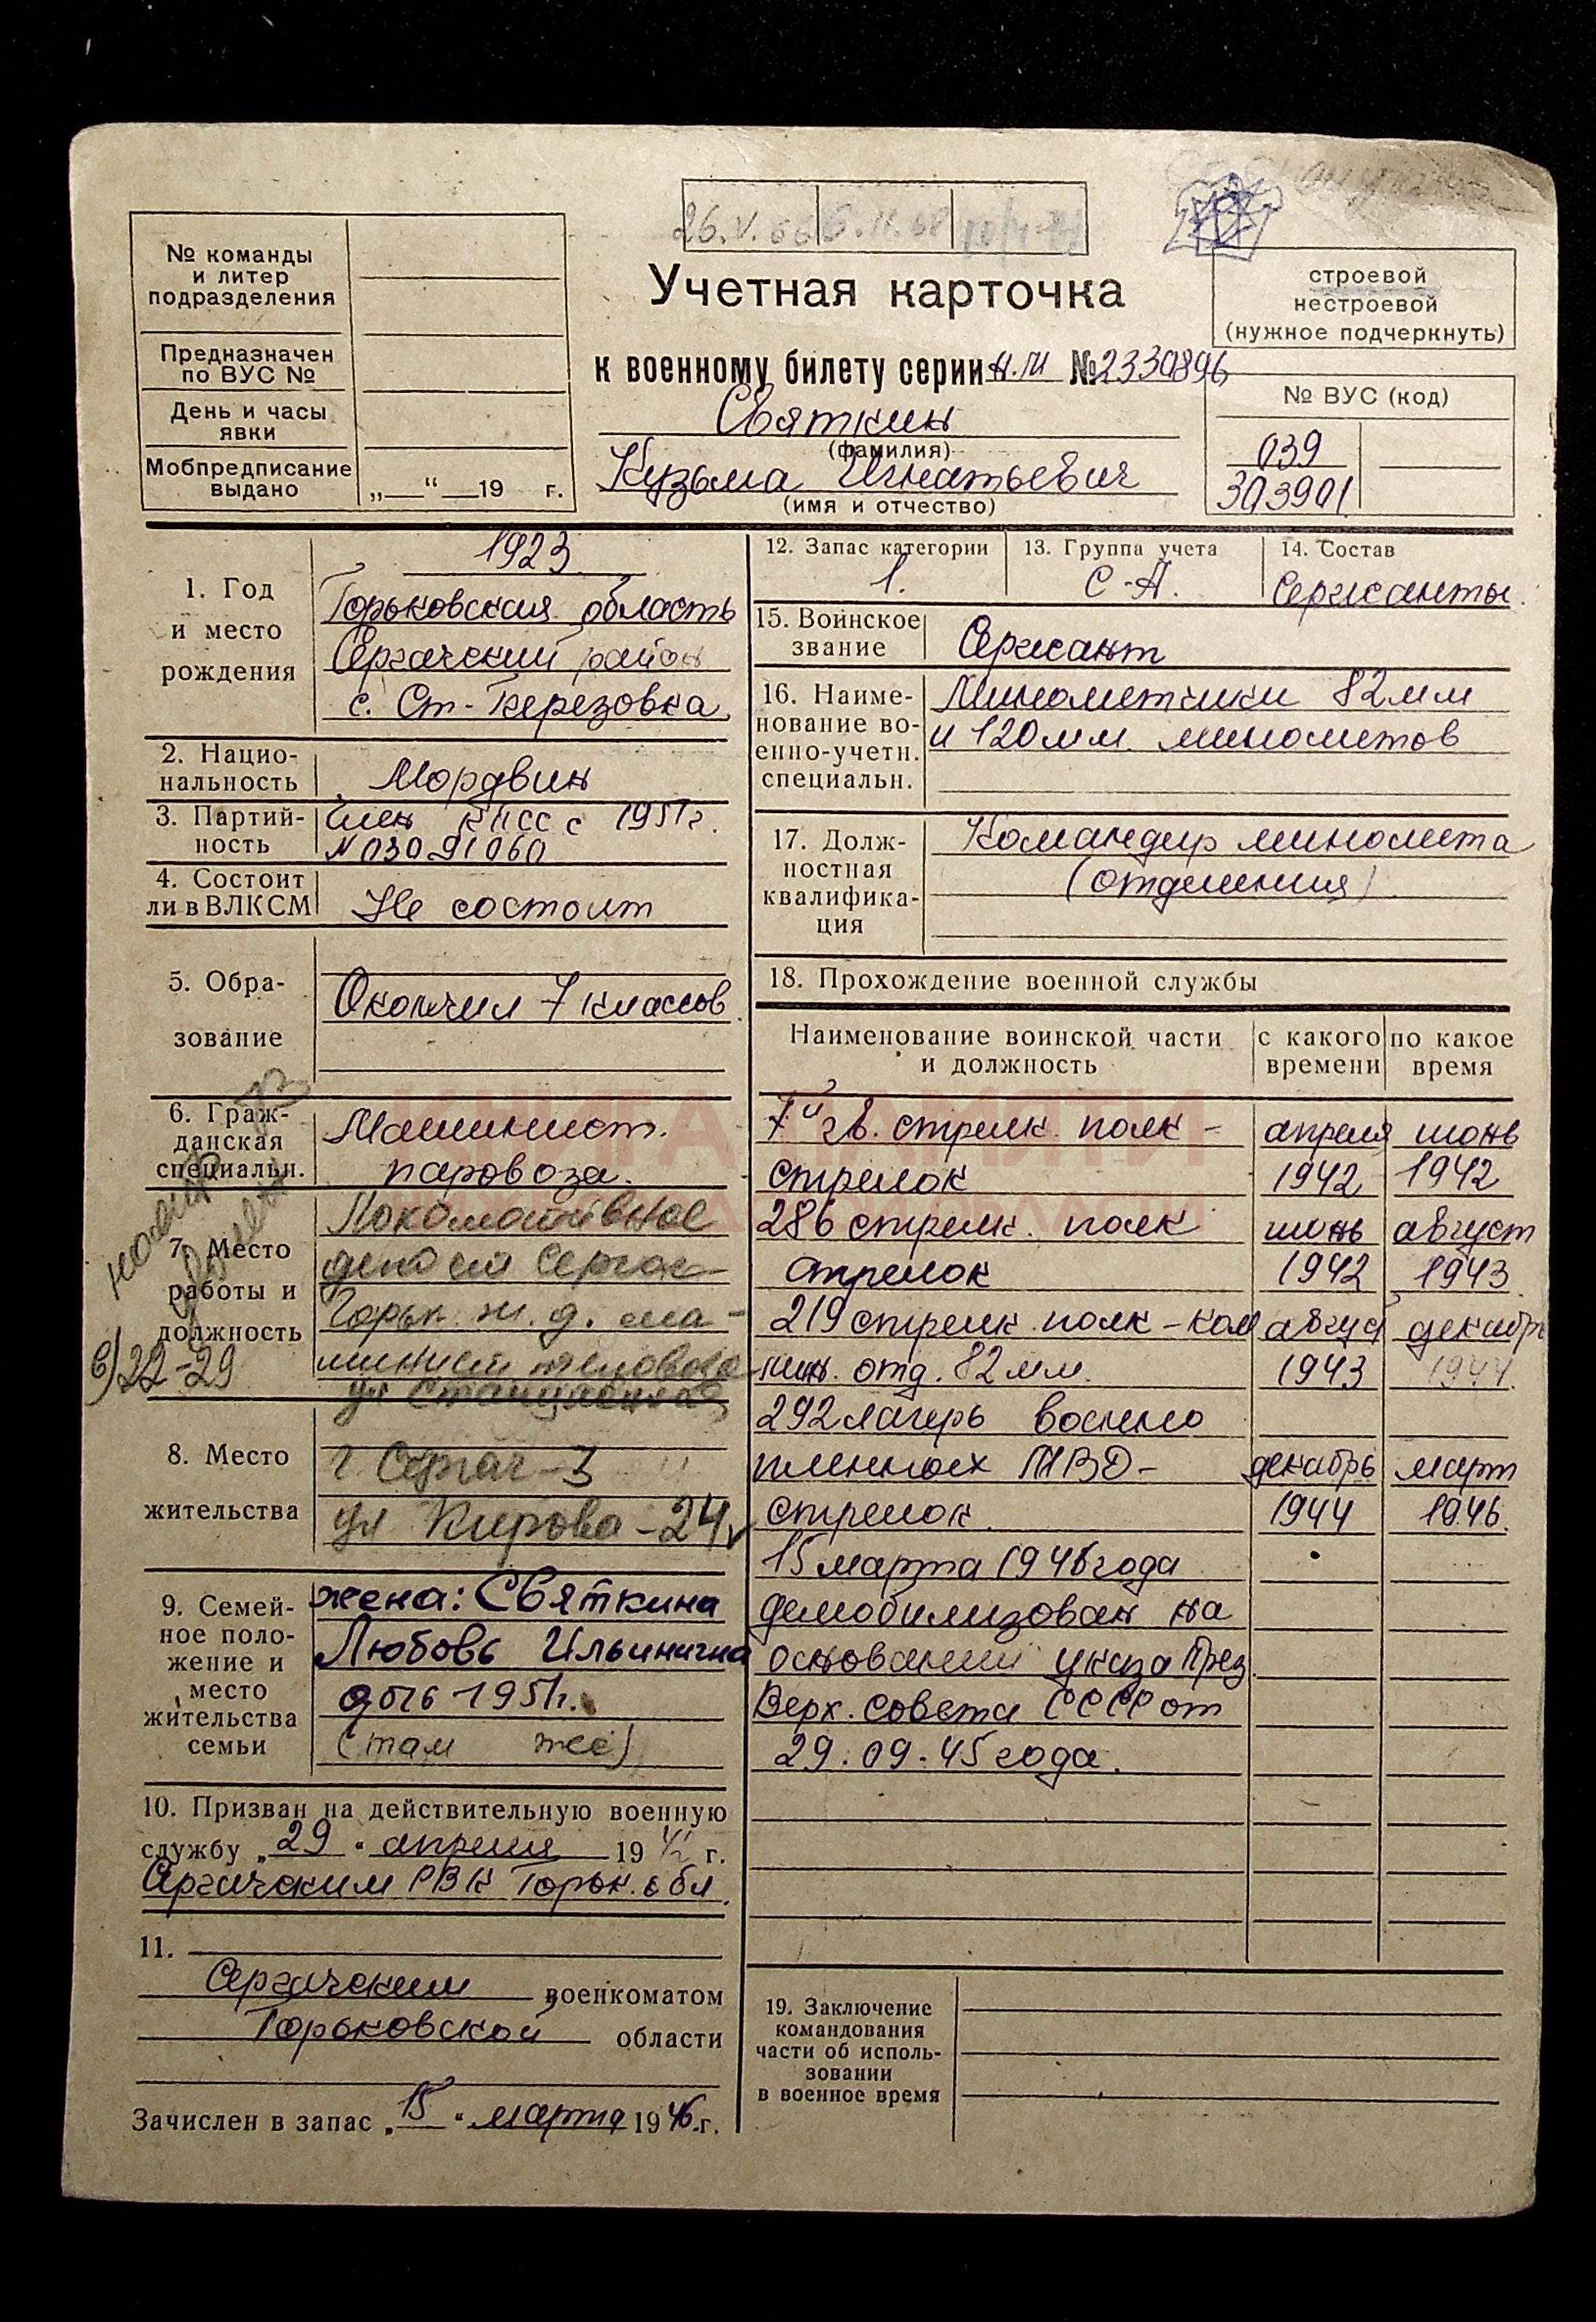 26.V.66
6.II.68
№ команды
и литер
подразделения
Предназначен
по ВУС №
День и часы
явки
Мобпредписание
выдано
„ “ 19 г.
Учетная карточка
к военному билету серии № 2330896
Святкин
(фамилия)
Кузьма Игнатьевич
(имя и отчество)
строевой
нестроевой
(нужное подчеркнуть)
№ ВУС (код)
039
303901
1. Год
и место
рождения
1923
Горьковская область
Сергачский район
с. Ст-Березовка
2. Нацио-
нальность
Мордвин
3. Партий-
ность
Член КПСС с 1951г.
N 03091060
4. Состоит
ли в ВЛКСМ
Не состоит
5. Обра-
зование
Окончил 7 классов
6. Граж-
данская
специальн.
Машинист
паровоза.
7. Место
работы и
должность
Локомотивное
депо ст Сергач
Горьк. ж. д. ма-
шинист тепловоза
22-29
8. Место
жительства
г Сергач-3
ул Кирова-24
9. Семей-
ное поло-
жение и
место
жительства
семьи
жена: Святкина
Любовь Ильинична
дочь 1951г.
(там же)
10. Призван на действительную военную
службу „29“ апреля 1942 г.
Сергачским РВК Горьк. обл.
11.
Сергачским военкоматом
Горьковской области
Зачислен в запас „15“ марта 1946 г.
12. Запас категории
1.
13. Группа учета
С-А.
14. Состав
Сержанты.
15. Воинское
звание
Сержант
16. Наиме-
нование во-
енно-учетн.
специальн.
Минометчики 82мм
и 120мм. минометов
17. Долж-
ностная
квалифика-
ция
Командир миномета
(отделения)
18. Прохождение военной службы
Наименование воинской части
и должность
с какого
времени
по какое
время
КНИГА ПАМЯТИ
7й гв. стрелк. полк - апреля июнь
стрелок 1942 1942
286 стрелк. полк июнь август
стрелок 1942 1943
219 стрелк. полк - ком август декабрь
мин. отд. 82мм. 1943 1944.
292 лагерь военно
пленных МВД - декабрь март
стрелок 1944 1946.
15 марта 1946 года
демобилизован на
основании указа През.
Верх. совета СССР от
29.09.45 года.
19. Заключение
командования
части об исполь-
зовании
в военное время